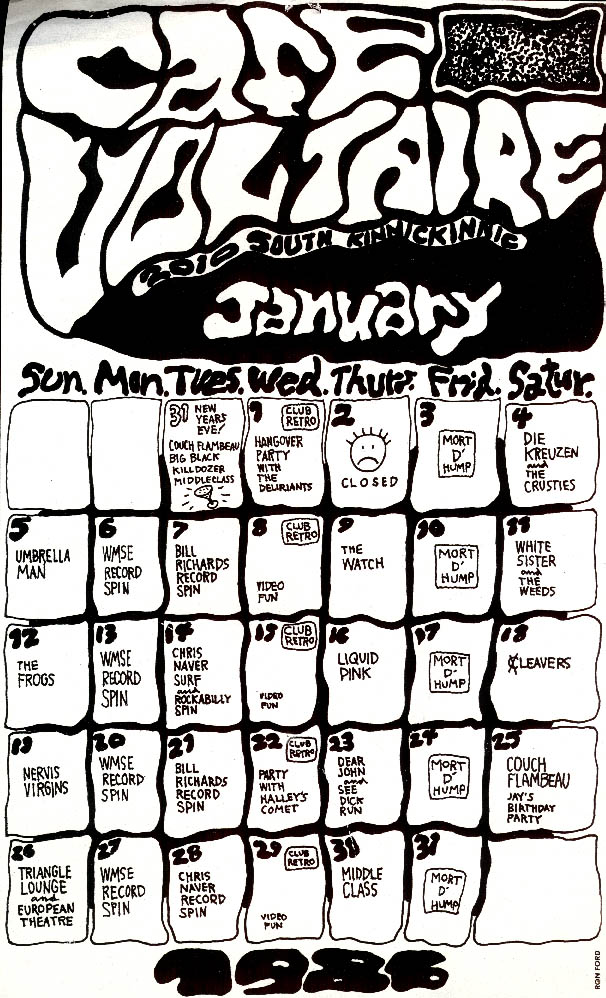 CAFE
VOLTAIRE
2010 SOUTH KINNICKINNIC
January
Sun. Mon. Tues. Wed. Thurs. Frid. Satur.
31 NEW
YEARS
EVE!
COUCH FLAMBEAU
BIG BLACK
KILLDOZER
MIDDLECLASS
1 CLUB
RETRO
HANGOVER
PARTY
WITH
THE
DELIRIANTS
2
CLOSED
3
MORT
D'
HUMP
4
DIE
KREUZEN
and
THE
CRUSTIES
5
UMBRELLA
MAN
6
WMSE
RECORD
SPIN
7
BILL
RICHARDS
RECORD
SPIN
8 CLUB
RETRO
VIDEO
FUN
9
THE
WATCH
10
MORT
D'
HUMP
11
WHITE
SISTER
and
THE
WEEDS
12
THE
FROGS
13
WMSE
RECORD
SPIN
14
CHRIS
NAVER
SURF
and
ROCKABILLY
SPIN
15 CLUB
RETRO
VIDEO
FUN
16
LIQUID
PINK
17
MORT
D'
HUMP
18
CLEAVERS
19
NERVIS
VIRGINS
20
WMSE
RECORD
SPIN
21
BILL
RICHARDS
RECORD
SPIN
22 CLUB
RETRO
PARTY
WITH
HALLEY'S
COMET
23
DEAR
JOHN
and
SEE
DICK
RUN
24
MORT
D'
HUMP
25
COUCH
FLAMBEAU
JAY'S
BIRTHDAY
PARTY
26
TRIANGLE
LOUNGE
and
EUROPEAN
THEATRE
27
WMSE
RECORD
SPIN
28
CHRIS
NAVER
RECORD
SPIN
29 CLUB
RETRO
VIDEO
FUN
30
MIDDLE
CLASS
31
MORT
D'
HUMP
1986
RON FORD